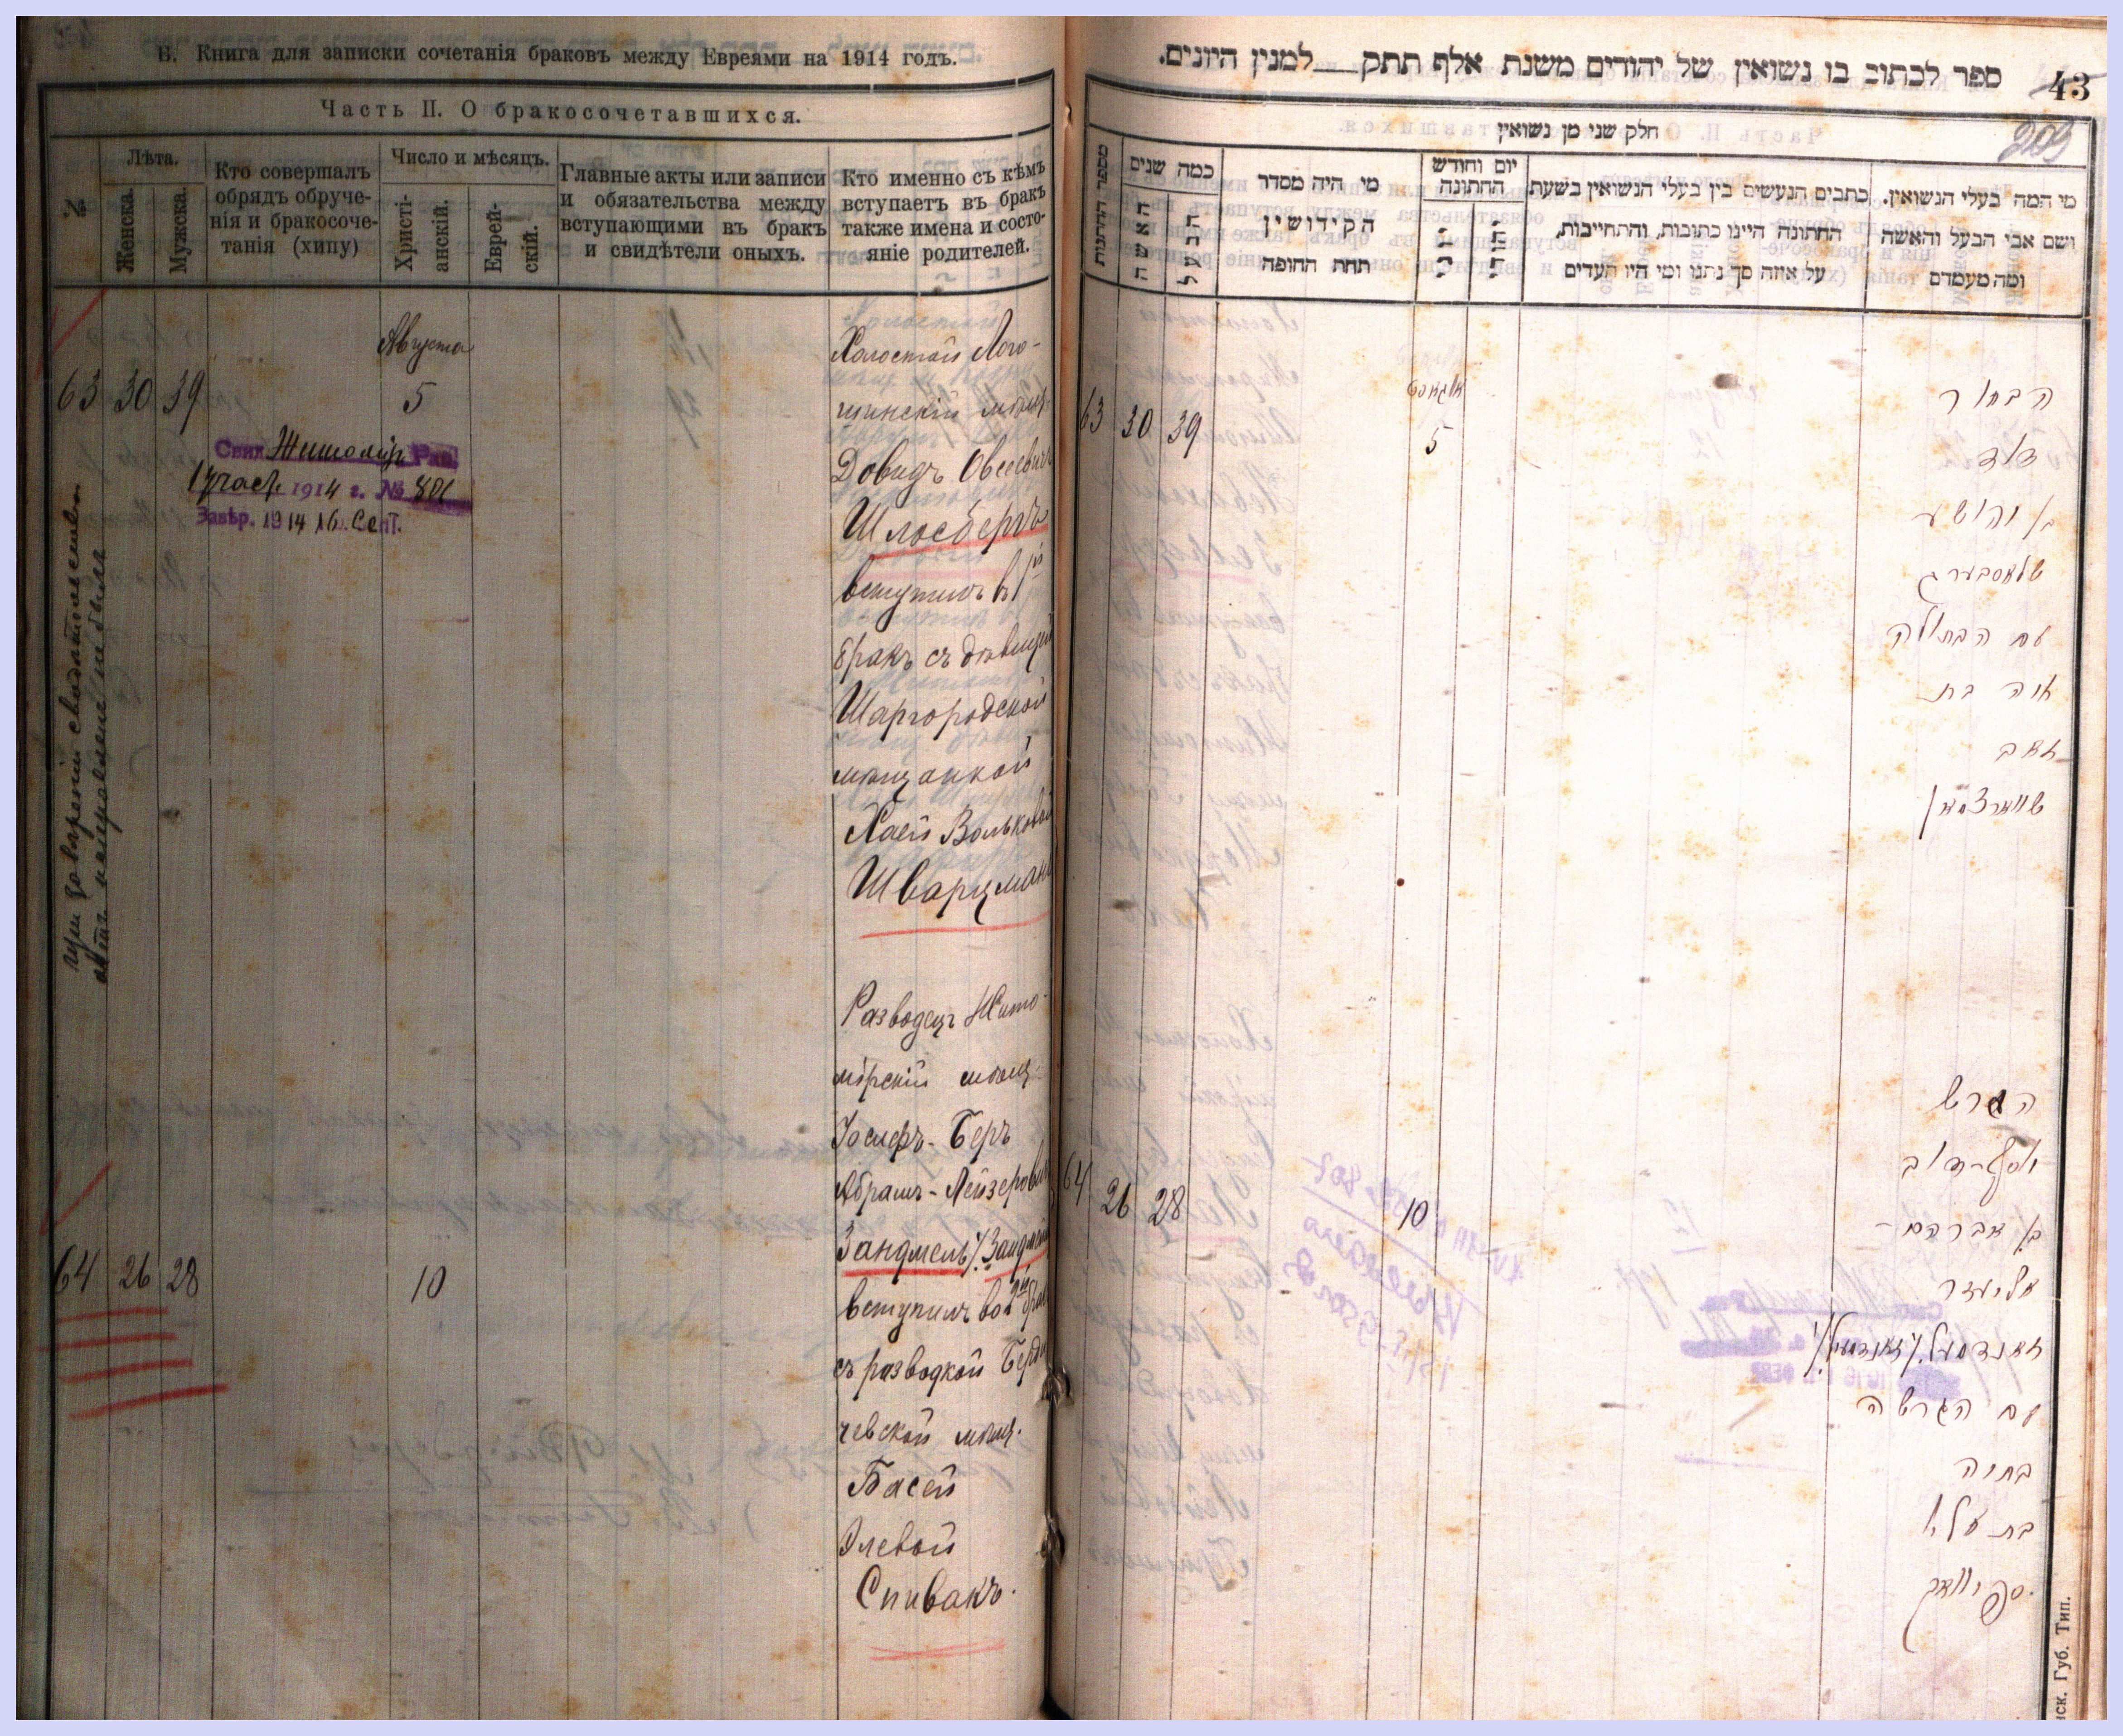 Б. Книга для записки сочетанія браковъ между Евреями на 1914 годъ.
Часть II. О бракосочетавшихся.
№
Лѣта.
Женска.
Мужска.
Кто совершалъ
обрядъ обруче-
нія и бракосоче-
танія (хипу)
Число и мѣсяцъ.
Христі-
анскій.
Еврей-
скій.
Главные акты или записи
и обязательства между
вступающими въ бракъ
и свидѣтели оныхъ.
Кто именно съ кѣмъ
вступаетъ въ бракъ
также имена и состо-
яніе родителей.
63 30 39
Августа
5
Свид. Житомір. Рав.
1 участ. 1914 г. №
Завѣр. 1914 16. Сент.
Холостой Лого-
шинскій мѣщ.
Довидъ Овсеевичъ
Шлосбергъ
вступилъ в 1й
бракъ съ дѣвицей
Шаргородской
мѣщанкой
Хаей Вольковой
Шварцманъ
64 26 28
10
Разводецъ Жито-
мірскій мѣщ.
Іосифъ-Беръ
Абрамъ-Лейзеровичъ
Зандмель /: Зандмейль
вступилъ во 2й брак
съ разводкой Берди
чевской мѣщ.
Басей
Элевой
Спивакъ.
ספר לכתוב בו נשואין של יהודים משנת אלף תתק למנין היונים.
43
209
חלק שני מן נשואין
מספר החתנות
כמה שנים
האשה
הבעל
מי היה מסדר
הקידושין
תחת החופה
יום וחודש
החתונה
כתבים הנעשים בין בעלי הנשואין בשעת
החתונה היינו כתובות, והתחייבות,
על איזה סך נתנו ומי היו העדים
מי המה בעלי הנשואין.
ושם אבי הבעל והאשה
ומה מעמדם
63 30 39
אוגאוסט
5
הבחור
דוד
בן יהושע
שלאסבערג
עם הבתולה
חיה בת
זאב
שווארצמאן
64 26 28
10
הגרוש
יוסף-דוב
בן אברהם-
אליעזר
זאנדמעל /: זאנדמייל :/
עם הגרושה
בתיה
בת עלא
ספיוואק.
нск. Губ. Тип.